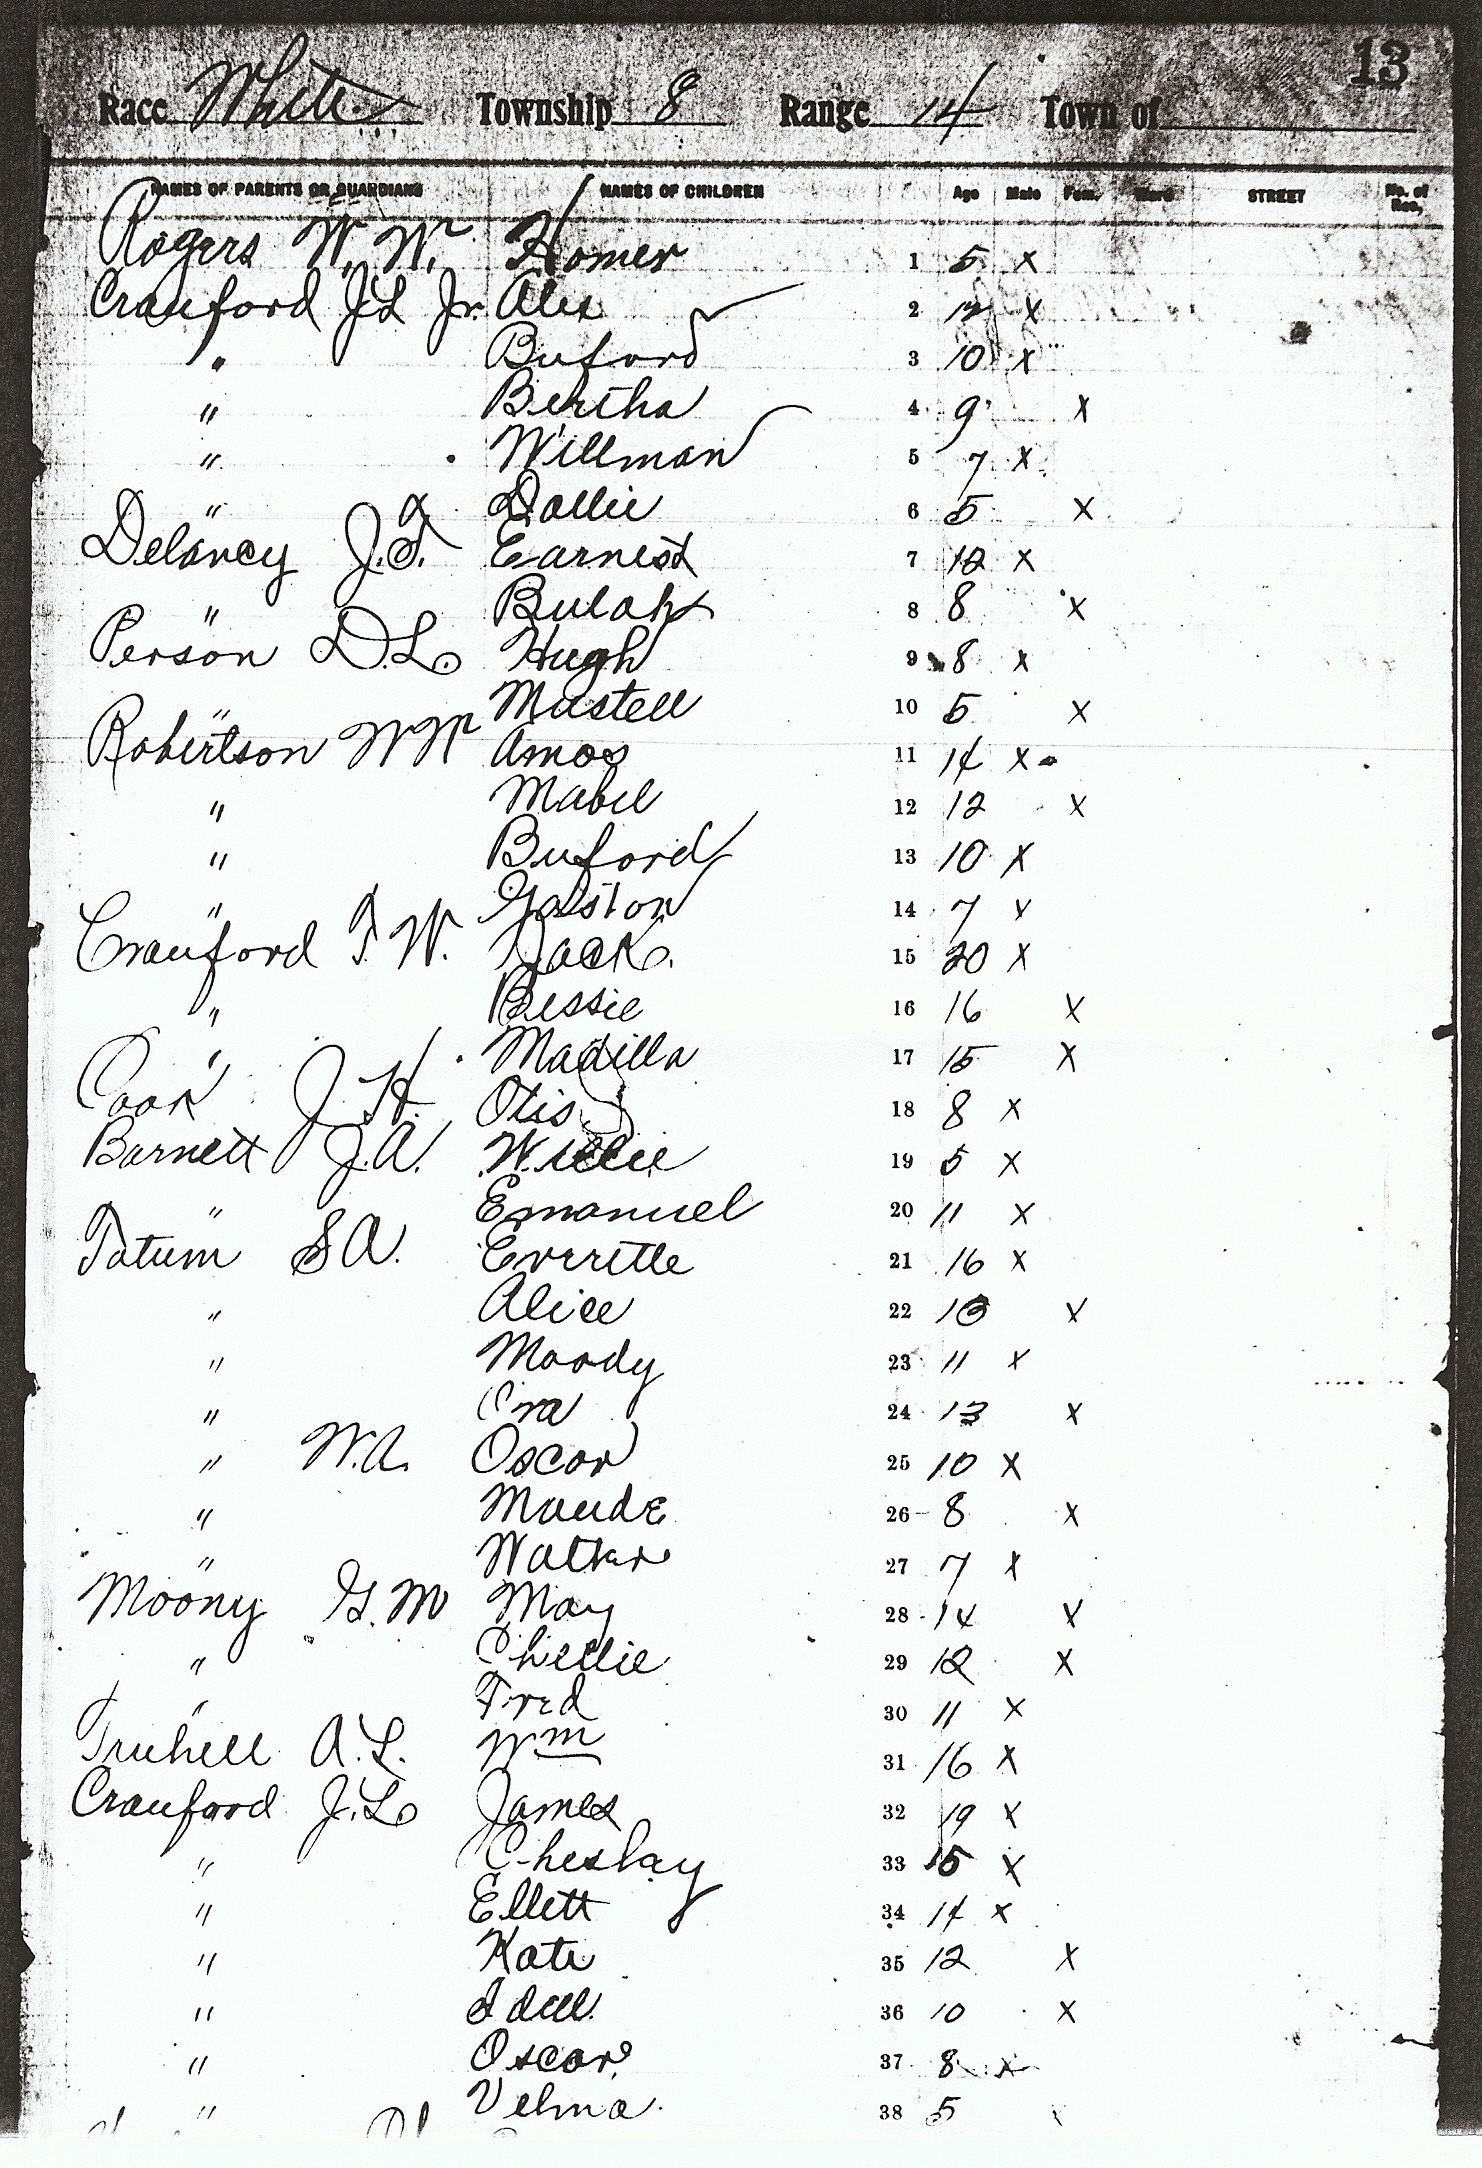 13
Race White Township 8 Range 14 Town of
NAMES OF PARENTS OR GUARDIANS NAMES OF CHILDREN Age Male Fem. Ward STREET No. of Res.
Rogers W. W. Homer 1 5 x
Cranford J L Jr. Alex 2 12 x
" Buford 3 10 x
" Bertha 4 9 x
" Willman 5 7 x
" Dollie 6 5 x
Delancy J. T. Earnest 7 12 x
" Bulah 8 8 x
Person D. L. Hugh 9 8 x
" Mustell 10 5 x
Robertson W W Amos 11 14 x
" Mabel 12 12 x
" Buford 13 10 x
" Gaston 14 7 x
Cranford T. W. Jack 15 20 x
" Bessie 16 16 x
" Madilla 17 15 x
Cook J. H. Otis 18 8 x
Barnett J. A. Willie 19 5 x
" Emanuel 20 11 x
Tatum S A. Everette 21 16 x
" Alice 22 13 x
" Moody 23 11 x
" Ora 24 13 x
" W. A. Oscar 25 10 x
" Maude 26 8 x
" Walker 27 7 x
Moony G. M May 28 14 x
" Chellie 29 12 x
" Fred 30 11 x
Truhell A. L. Wm 31 16 x
Cranford J. L. James 32 19 x
" Cheslay 33 15 x
" Ellett 34 14 x
" Kate 35 12 x
" Idell 36 10 x
" Oscar 37 8 x
" Velma 38 5 x